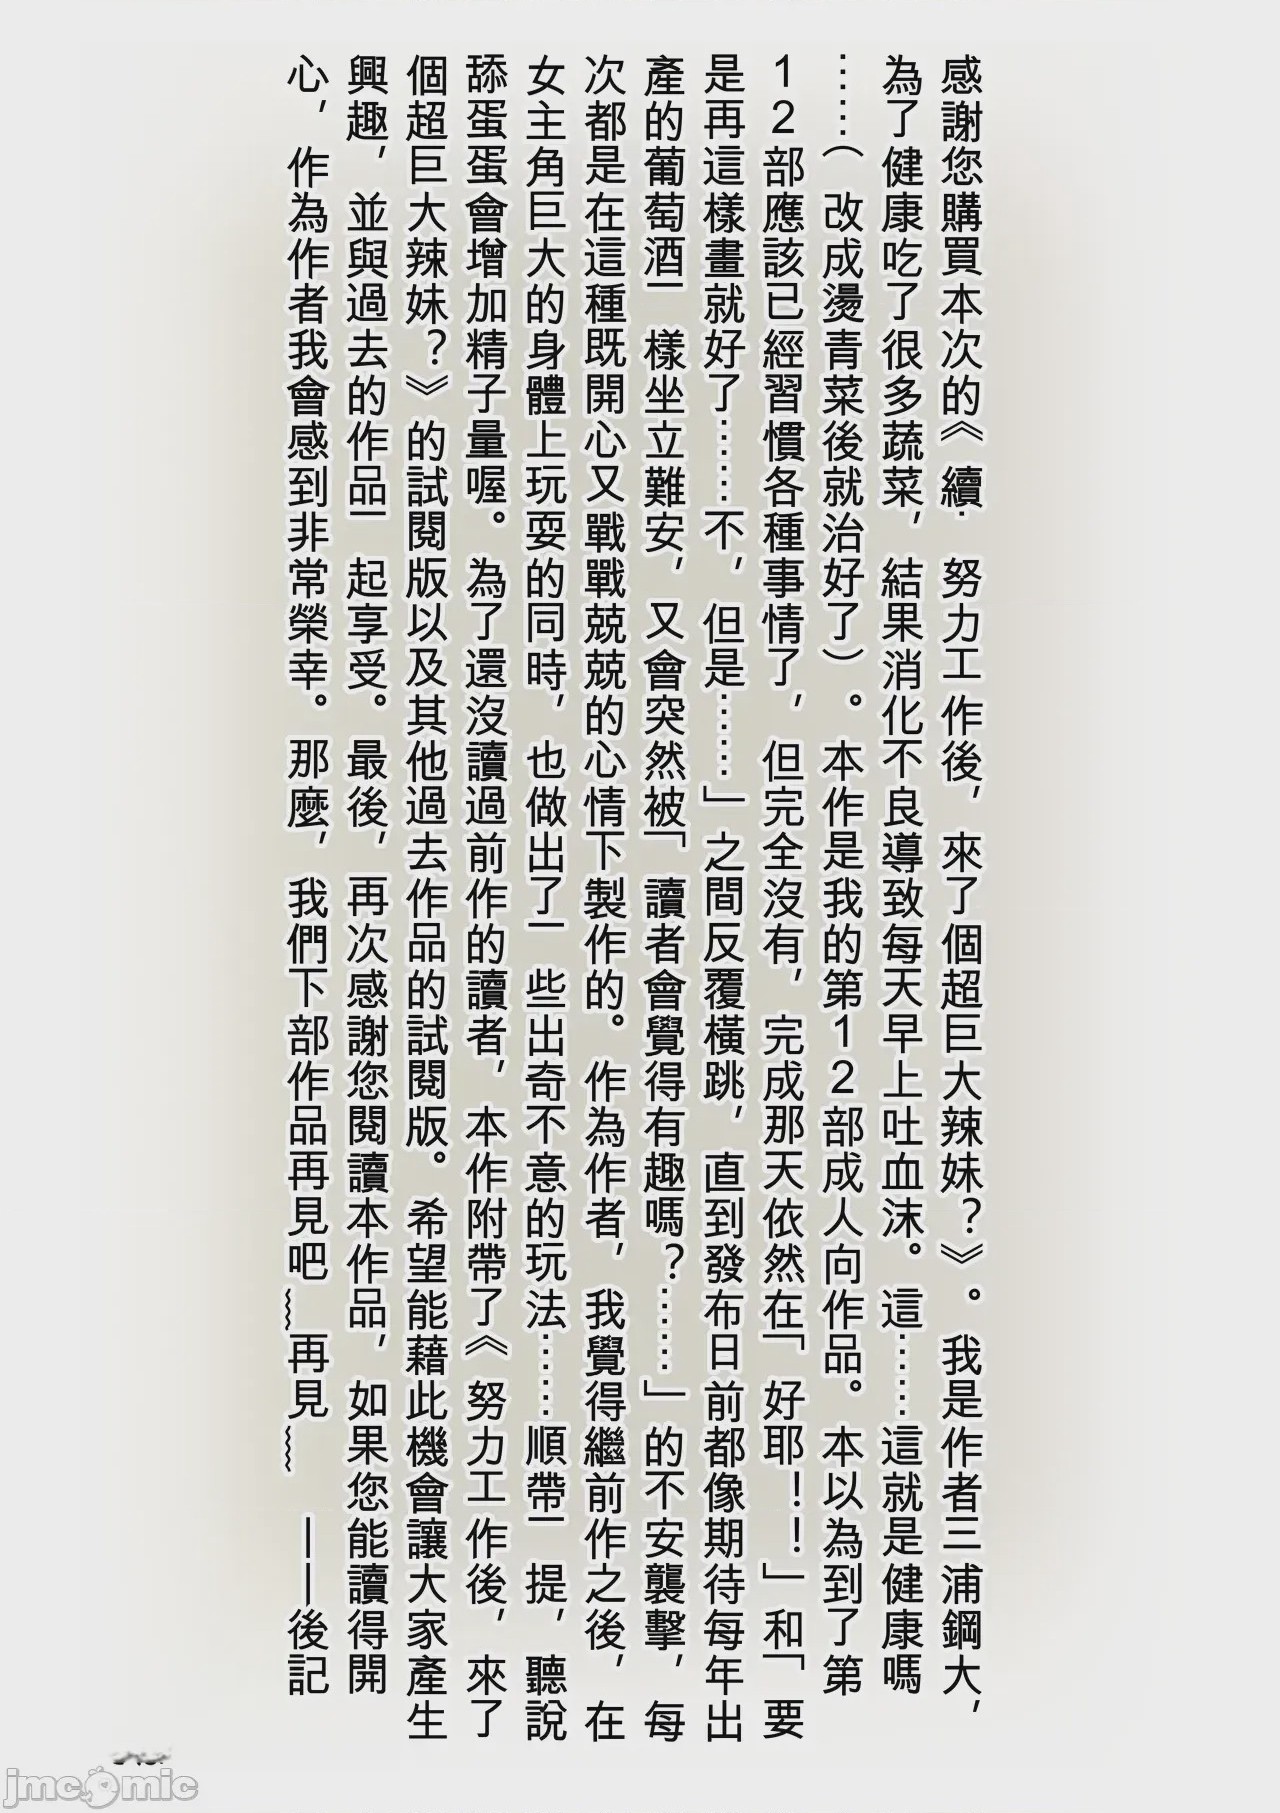 感謝您購買本次的《續·努力工作後，來了個超巨大辣妹？》。我是作者三浦鋼大，
為了健康吃了很多蔬菜，結果消化不良導致每天早上吐血沫。這……這就是健康嗎
……（改成燙青菜後就治好了）。本作是我的第12部成人向作品。本以為到了第
12部應該已經習慣各種事情了，但完全沒有，完成那天依然在「好耶！！」和「要
是再這樣畫就好了……不，但是……」之間反覆橫跳，直到發布日前都像期待每年出
產的葡萄酒一樣坐立難安，又會突然被「讀者會覺得有趣嗎？……」的不安襲擊，每
次都是在這種既開心又戰戰兢兢的心情下製作的。作為作者，我覺得繼前作之後，在
女主角巨大的身體上玩耍的同時，也做出了一些出奇不意的玩法……順帶一提，聽說
舔蛋蛋會增加精子量喔。為了還沒讀過前作的讀者，本作附帶了《努力工作後，來了
個超巨大辣妹？》的試閱版以及其他過去作品的試閱版。希望能藉此機會讓大家產生
興趣，並與過去的作品一起享受。最後，再次感謝您閱讀本作品，如果您能讀得開
心，作為作者我會感到非常榮幸。那麼，我們下部作品再見吧~~再見~~　——後記
jmcomic